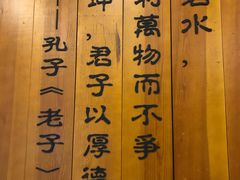 若水，
利萬物而不爭
坤，君子以厚德
—孔子《老子》